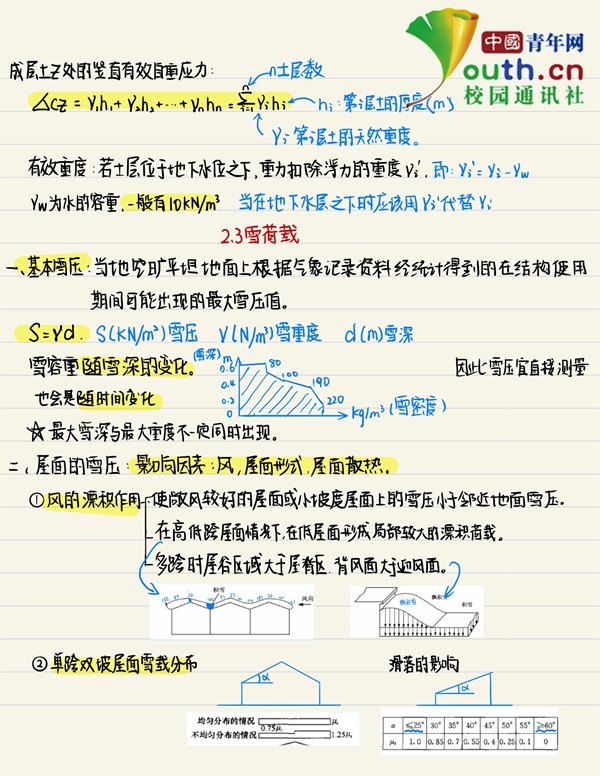 中國青年网
Youth.cn
校园通讯社
成层土Z处的竖直有效自重应力:
n土层数
σcz = γ₁h₁+γ₂h₂+…+γₙhₙ = Σγᵢhᵢ
n
hᵢ:第i层土的厚度(m)
γᵢ 第i层土的天然重度。
有效重度:若土层位于地下水位之下,重力扣除浮力的重度γᵢ′, 即:γᵢ′=γᵢ-γw
γw为水的容重,一般有10KN/m³ 当在地下水层之下时应该用γᵢ′代替γᵢ
2.3雪荷载
一、基本雪压:当地空旷平坦地面上根据气象记录资料经统计得到的在结构使用
期间可能出现的最大雪压值。
S=γd. S(KN/m²)雪压 γ(N/m³)雪重度 d(m)雪深
雪容重随雪深的变化。
因此雪压宜直接测量
也会是随时间变化
(雪深)m
0.6
0.4
0.2
0
80
100
190
220
kg/m³(雪密度)
☆最大雪深与最大重度不一定同时出现。
二、屋面的雪压:影响因素:风,屋面形式,屋面散热。
①风的漂积作用-使微风较好的屋面或小坡度屋面上的雪压小于邻近地面雪压。
-在高低跨屋面情况下,在低屋面形成局部较大的漂积荷载。
-多跨时屋谷区域大于屋脊区,背风面大于迎风面。
积雪
风向
飘积雪
飘积雪
②单跨双坡屋面雪载分布
滑落的影响
α
α
均匀分布的情况 μr
不均匀分布的情况 0.75μr 1.25μr
α ≤25° 30° 35° 40° 45° 50° 55° ≥60°
μr 1.0 0.85 0.7 0.55 0.4 0.25 0.1 0